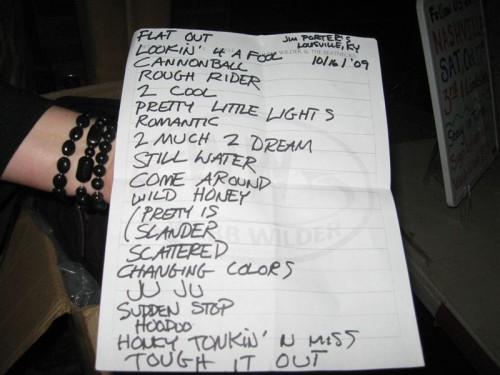 FLAT OUT
JIM PORTER'S
LOUSVILLE, KY
10/16/'09
LOOKIN' 4 A FOOL
WILDER & THE BEATNECKS
CANNONBALL
ROUGH RIDER
2 COOL
PRETTY LITTLE LIGHTS
ROMANTIC
2 MUCH 2 DREAM
STILL WATER
COME AROUND
WILD HONEY
(PRETTY IS
(SLANDER
WILDER
SCATTERED
CHANGING COLORS
JU JU
SUDDEN STOP
HOODOO
HONKY TONKIN' N MISS
TOUGH IT OUT
Follow us
NASHVILLE
SAT. OCT
3rd &